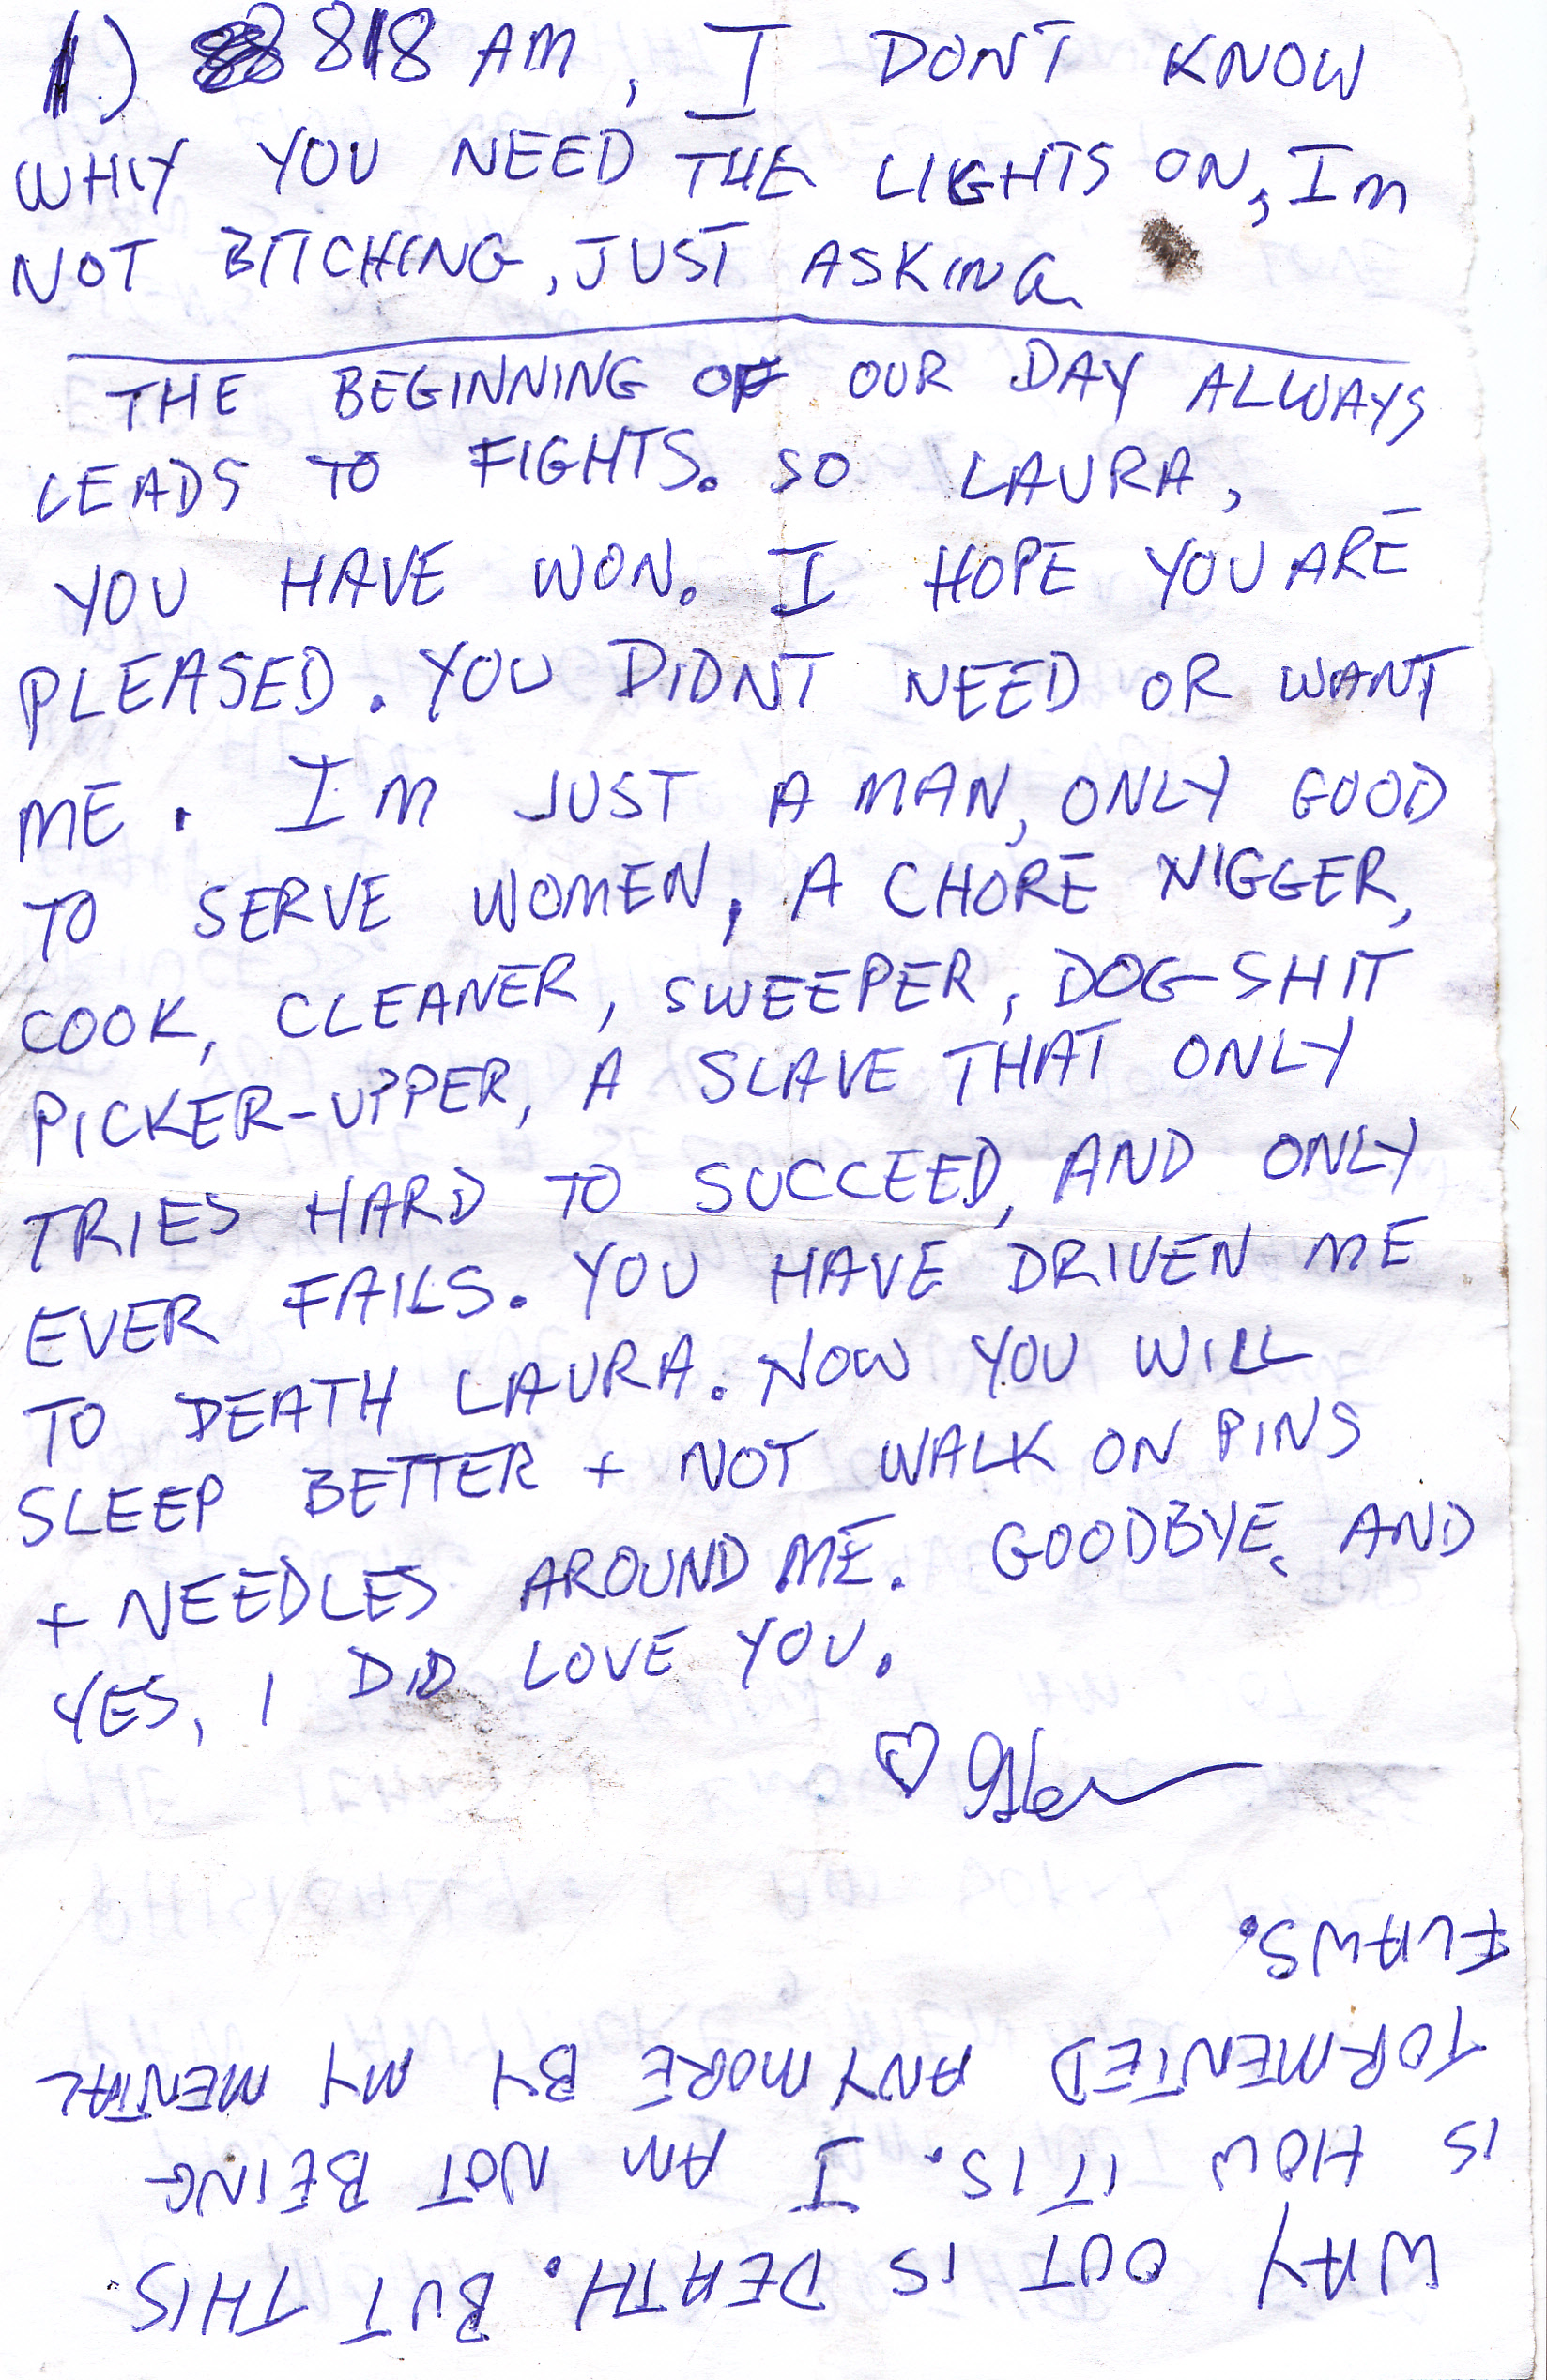 1) 818 AM, I DONT KNOW
WHY YOU NEED THE LIGHTS ON, IM
NOT BITCHING, JUST ASKING
THE BEGINNING OF OUR DAY ALWAYS
LEADS TO FIGHTS. SO LAURA,
YOU HAVE WON. I HOPE YOU ARE
PLEASED. YOU DIDNT NEED OR WANT
ME. IM JUST A MAN, ONLY GOOD
TO SERVE WOMEN, A CHORE NIGGER,
COOK, CLEANER, SWEEPER, DOG-SHIT
PICKER-UPPER, A SLAVE THAT ONLY
TRIES HARD TO SUCCEED, AND ONLY
EVER FAILS. YOU HAVE DRIVEN ME
TO DEATH LAURA. NOW YOU WILL
SLEEP BETTER + NOT WALK ON PINS
+ NEEDLES AROUND ME. GOODBYE, AND
YES, I DID LOVE YOU.
♡
WAY OUT IS DEATH. BUT THIS
IS HOW IT IS. I AM NOT BEING
TORMENTED ANYMORE BY MY MENTAL
FLAWS.